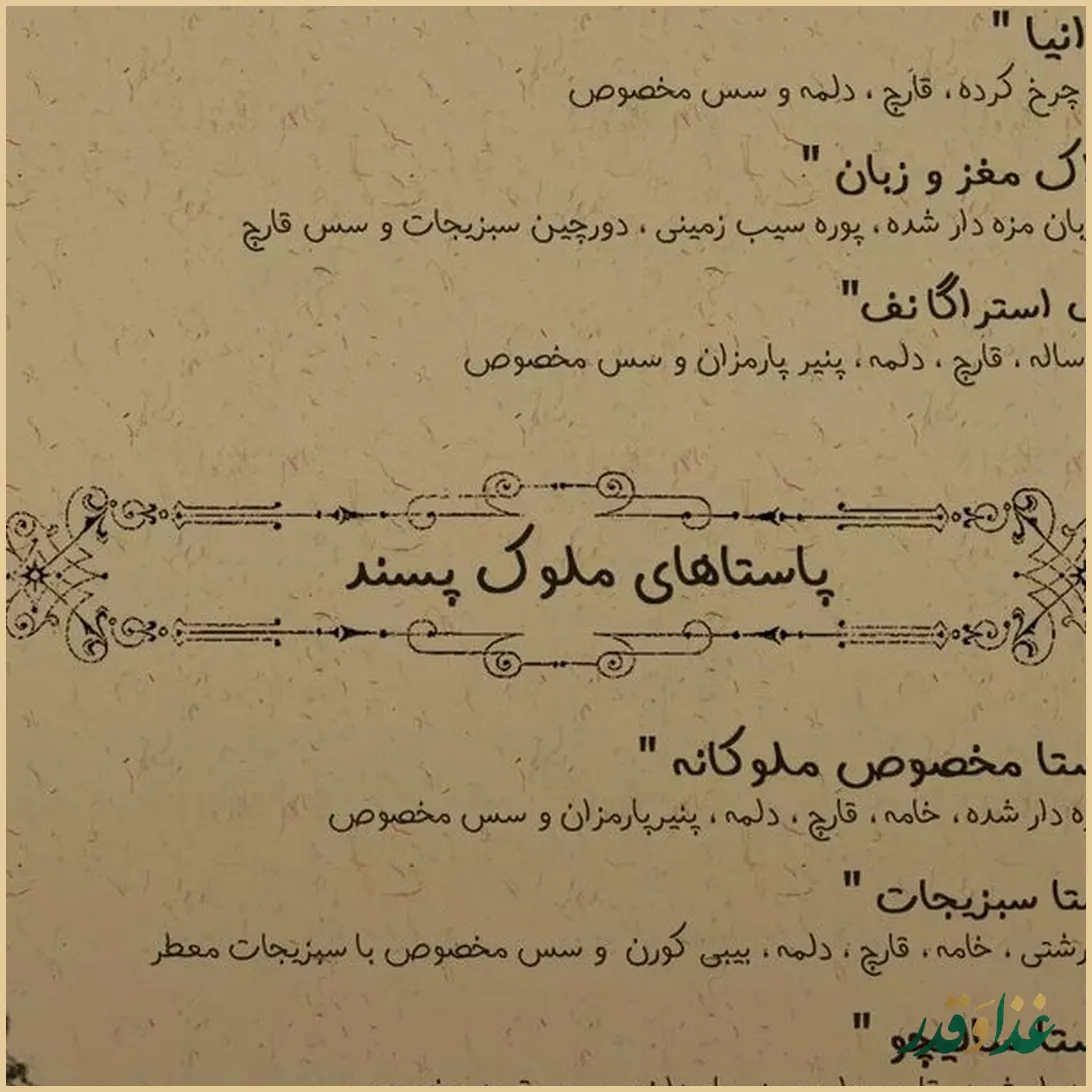 انیا "
چرخ کرده، قارچ ، دلمه و سس مخصوص
اک مغز و زبان "
بان مزه دار شده، پوره سیب زمینی ، دورچین سبزیجات و سس قارچ
استراگانف"
ساله ، قارچ ، دلمه، پنیر پارمزان و سس مخصوص
پاستاهای ملوک پسند
ستا مخصوص ملوکانه "
ه دار شده، خامه، قارچ ، دلمه ، پنیرپارمزان و سس مخصوص
ستا سبزیجات "
رشتی ، خامه، قارچ ، دلمه، بیبی کورن و سس مخصوص با سبزیجات معطر
غذا و قدر